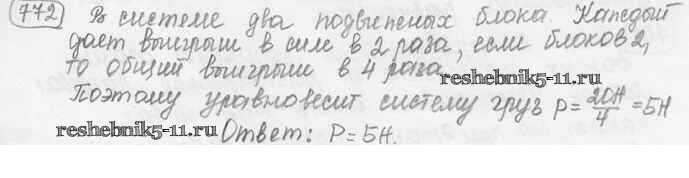 772 В системе два подвижных блока Каждый
дает выигрыш в силе в 2 раза, если блоков 2,
то общий выигрыш в 4 раза
reshebnik5-11.ru
Поэтому уравновесит систему груз P = 20Н/4 = 5Н
reshebnik5-11.ru
Ответ: P = 5Н.